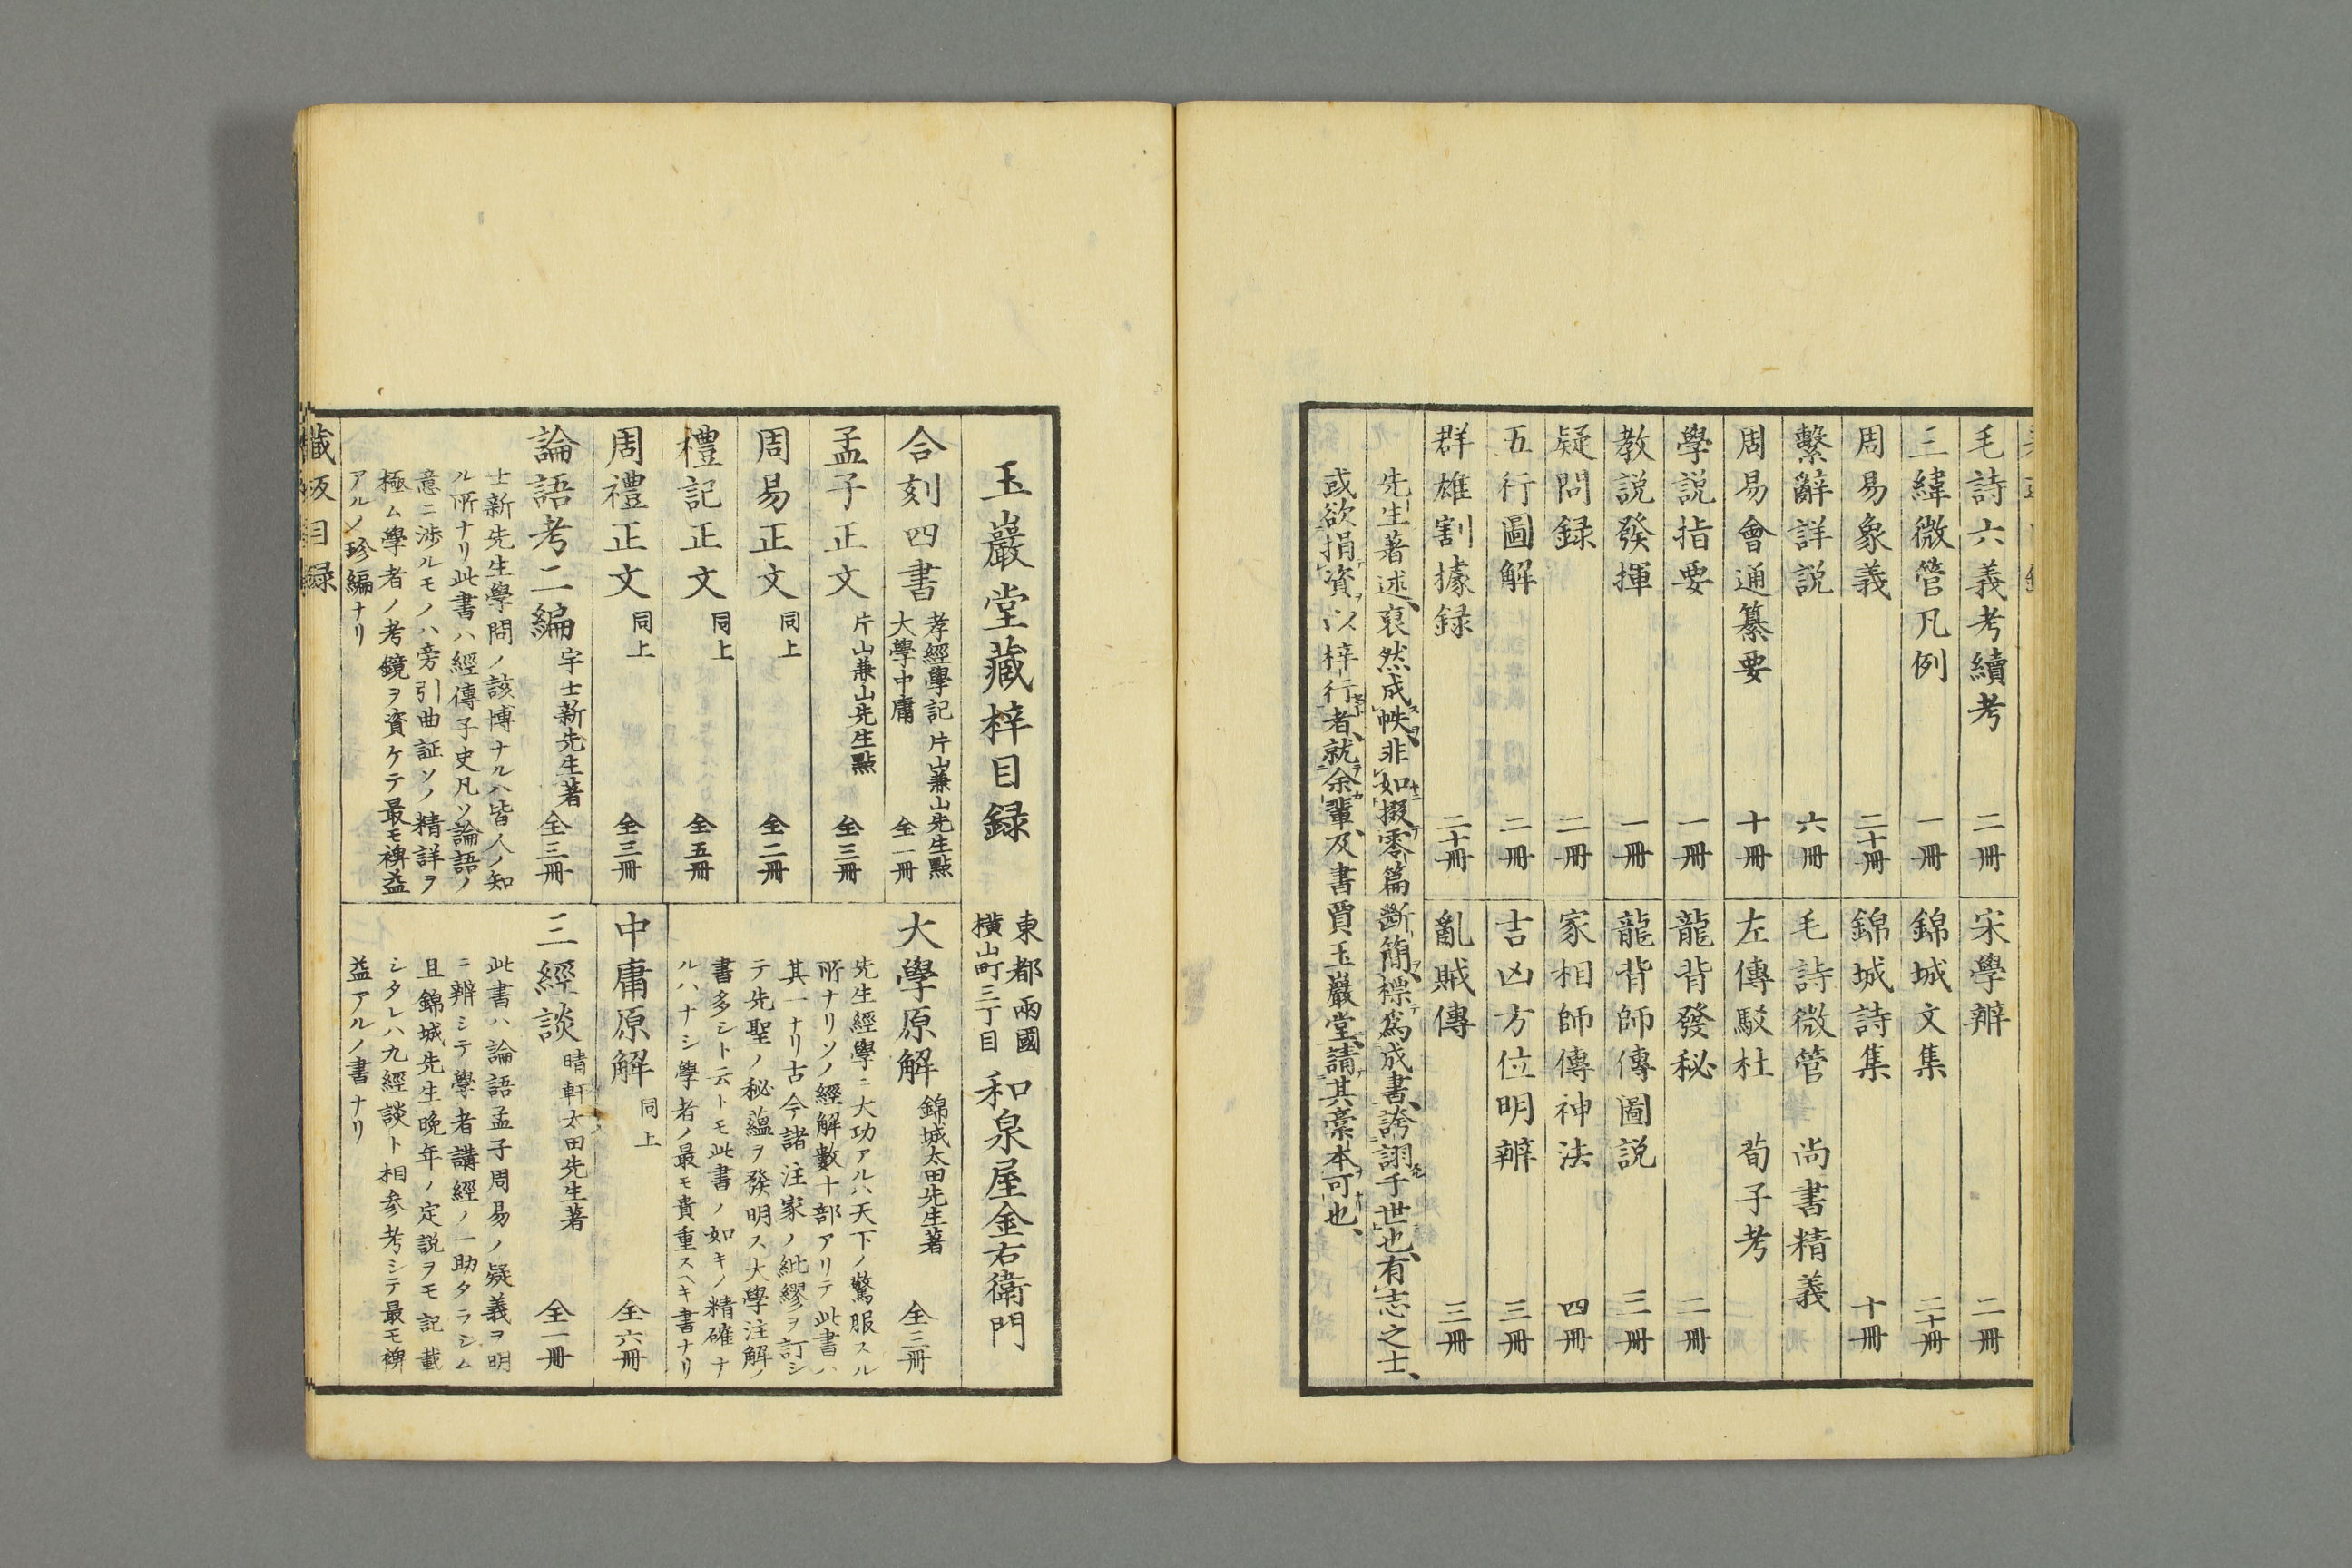 毛詩六義考續考 二冊
三緯微管凡例 一冊
周易象義 二十冊
繫辭詳説 六冊
周易會通纂要 十冊
學説指要 一冊
教説發揮 一冊
疑問録 二冊
五行圖解 二冊
群雄割據録 二十冊
宋學辨 二冊
錦城文集 二十冊
錦城詩集 十冊
毛詩微管 尚書精義
左傳駁杜 荀子考
龍背發秘 二冊
龍背師傳圖説 三冊
家相師傳神法 四冊
吉凶方位明辨 三冊
亂賊傳 三冊
先生著述裒然成帙非如掇零篇斷簡標爲成書誇詡于世也有志之士
或欲捐資以梓行者就余輩及書賈玉巖堂請其稾本可也
玉巖堂藏梓目録 東都兩國横山町三丁目 和泉屋金右衛門
合刻四書 孝經學記大學中庸 片山兼山先生點 全一冊
孟子正文 片山兼山先生點 全三冊
周易正文 同上 全二冊
禮記正文 同上 全五冊
周禮正文 同上 全三冊
論語考二編 宇士新先生著 全三冊
士新先生學問ノ該博ナルハ皆人ノ知
ル所ナリ此書ハ經傳子史凡ソ論語ノ
意ニ渉ルモノハ旁引曲証ソノ精詳ヲ
極ム學者ノ考鏡ヲ資ケテ最モ裨益
アルノ珍編ナリ
大學原解 錦城太田先生著 全三冊
先生經學ニ大功アルハ天下ノ驚服スル
所ナリソノ經解數十部アリテ此書ハ
其一ナリ古今諸注家ノ紕繆ヲ訂シ
テ先聖ノ秘蘊ヲ發明ス大學注解ノ
書多シト云トモ此書ノ如キノ精確ナ
ルハナシ學者ノ最モ貴重スヘキ書ナリ
中庸原解 同上 全六冊
三經談 晴軒太田先生著 全一冊
此書ハ論語孟子周易ノ疑義ヲ明
ニ辨シテ學者講經ノ一助タラシム
且錦城先生晩年ノ定説ヲモ記載
シタレハ九經談ト相参考シテ最モ裨
益アルノ書ナリ
藏版目録